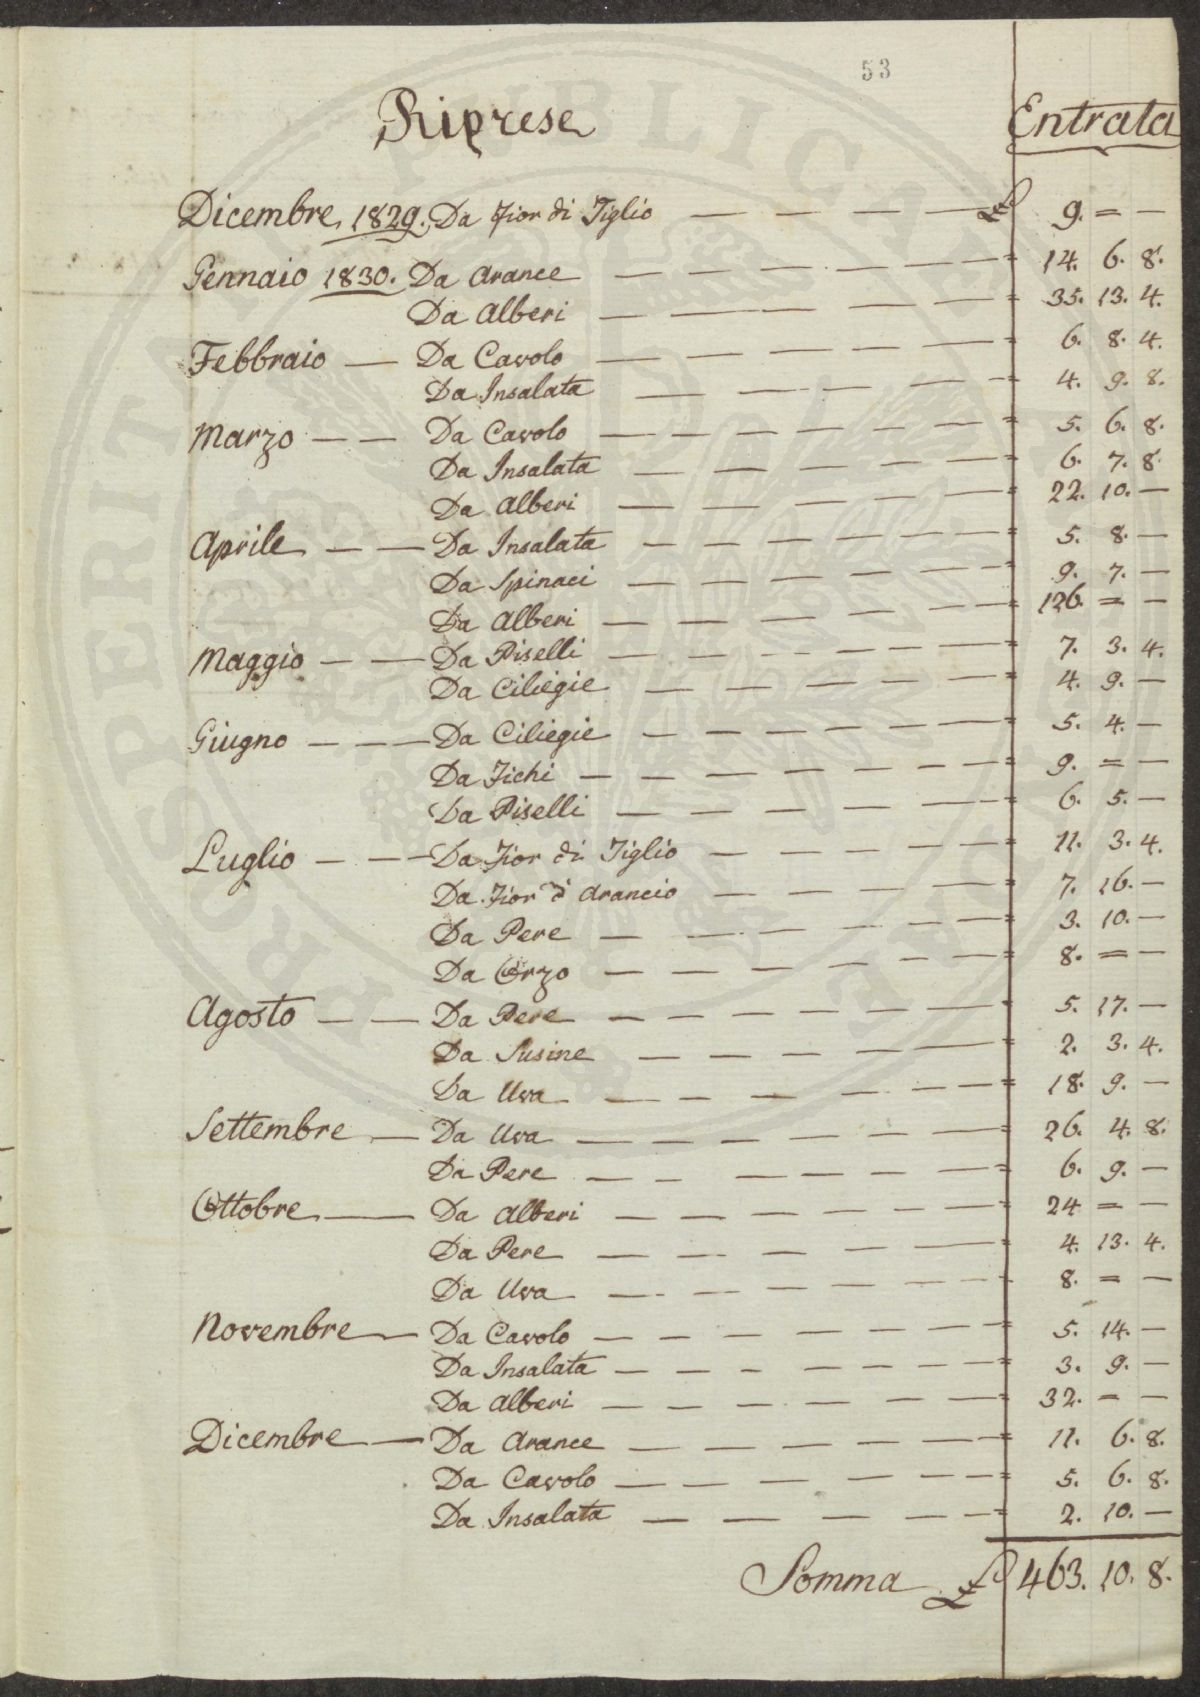 53
Riprese
Entrata
Dicembre 1829. Da Fior di Tiglio — — — — £ 9. = —
Gennaio 1830. Da Arance — — — — — — = 14. 6. 8.
Da Alberi — — — — — — = 35. 13. 4.
Febbraio — Da Cavolo — — — — — — = 6. 8. 4.
Da Insalata — — — — — — = 4. 9. 8.
Marzo — — Da Cavolo — — — — — — = 5. 6. 8.
Da Insalata — — — — — — = 6. 7. 8.
Da Alberi — — — — — — = 22. 10. —
Aprile — — Da Insalata — — — — — — = 5. 8. —
Da Spinaci — — — — — — = 9. 7. —
Da Alberi — — — — — — = 126. = —
Maggio — — Da Piselli — — — — — — = 7. 3. 4.
Da Ciliegie — — — — — — = 4. 9. —
Giugno — — Da Ciliegie — — — — — — = 5. 4. —
Da Fichi — — — — — — = 9. = —
Da Piselli — — — — — — = 6. 5. —
Luglio — — Da Fior di Tiglio — — — — — = 11. 3. 4.
Da Fior d'Arancio — — — — — = 7. 16. —
Da Pere — — — — — — = 3. 10. —
Da Orzo — — — — — — = 8. = —
Agosto — — Da Pere — — — — — — = 5. 17. —
Da Susine — — — — — — = 2. 3. 4.
Da Uva — — — — — — = 18. 9. —
Settembre — Da Uva — — — — — — = 26. 4. 8.
Da Pere — — — — — — = 6. 9. —
Ottobre — Da Alberi — — — — — — = 24 = —
Da Pere — — — — — — = 4. 13. 4.
Da Uva — — — — — — = 8. = —
Novembre — Da Cavolo — — — — — — = 5. 14. —
Da Insalata — — — — — — = 3. 9. —
Da Alberi — — — — — — = 32. = —
Dicembre — Da Arance — — — — — — = 11. 6. 8.
Da Cavolo — — — — — — = 5. 6. 8.
Da Insalata — — — — — — = 2. 10. —
Somma £ 463. 10. 8.